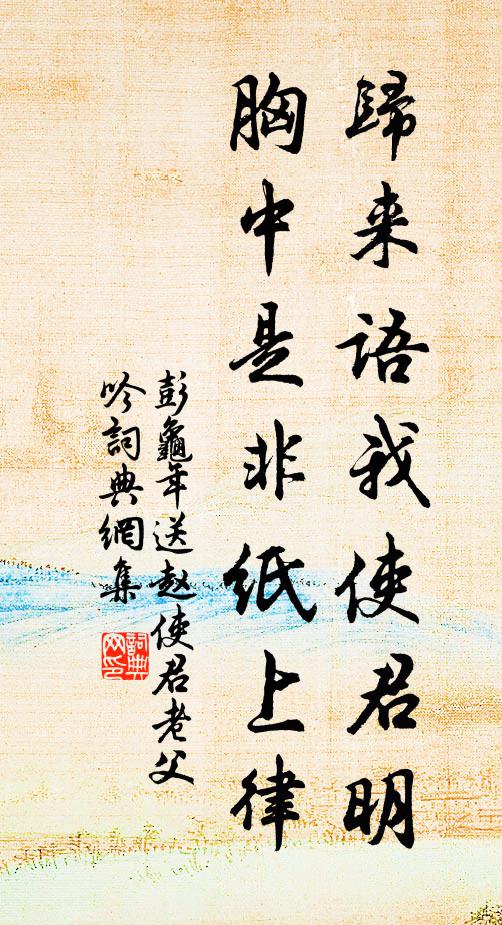 歸来語我使君明
胸中是非紙上律
彭龜年送赵使君老父
吟詞典網集
詞典网印